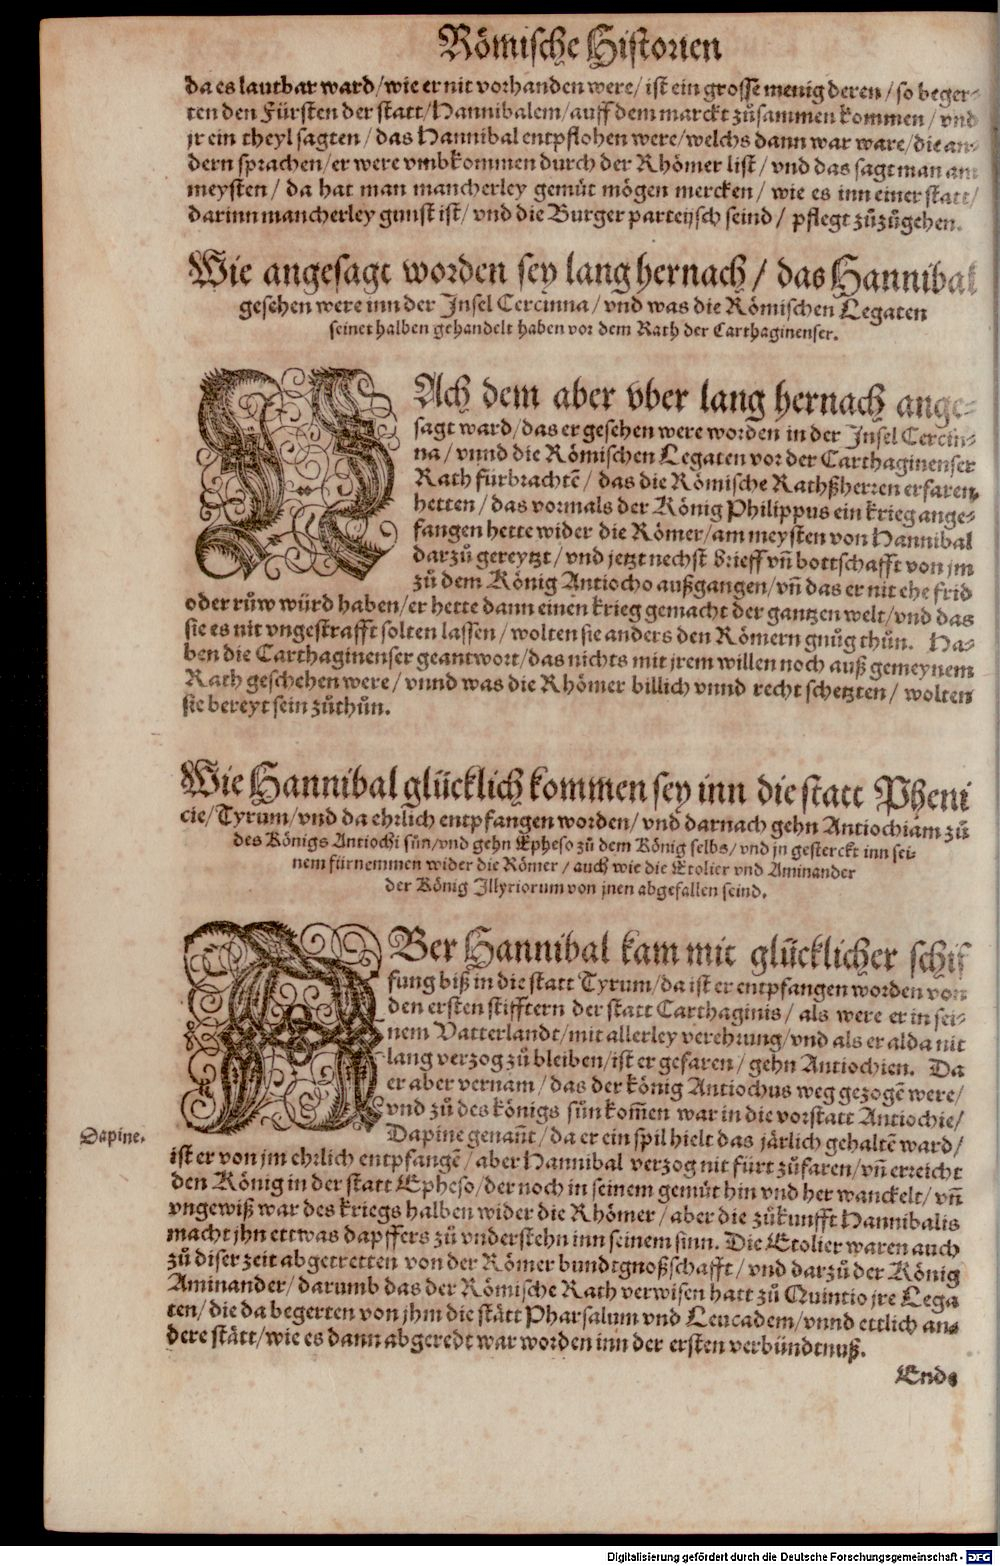 Römische Historien
da es lautbar ward/ wie er nit vorhanden were/ ist ein grosse menig deren/ so beger-
ten den Fürsten der statt/ Hannibalem/ auff dem marckt zůsammen kommen/ vnd
jr ein theyl sagten/ das Hannibal entpflohen were/ welchs dann war ware/ die an-
dern sprachen/ er were vmbkommen durch der Rhömer list/ vnd das sagt man am
meysten/ da hat man mancherley gemüt mögen mercken/ wie es inn einer statt/
darinn mancherley gunst ist/ vnd die Burger parteysch seind/ pflegt zůzůgehen.
Wie angesagt worden sey lang hernach/ das Hannibal
gesehen were inn der Insel Cercinna/ vnd was die Römischen Legaten
seinet halben gehandelt haben vor dem Rath der Carthaginenser.
NAch dem aber vber lang hernach ange-
sagt ward/ das er gesehen were worden in der Insel Cercin-
na/ vnnd die Römischen Legaten vor der Carthaginenser
Rath fürbrachtē/ das die Römische Rathßherren erfaren
hetten/ das vormals der König Philippus ein krieg ange-
fangen hette wider die Römer/ am meysten von Hannibal
darzů gereytzt/ vnd jetzt nechst brieff vñ bottschafft von jm
zů dem König Antiocho außgangen/ vñ das er nit ehe frid
oder růw würd haben/ er hette dann einen krieg gemacht der gantzen welt/ vnd das
sie es nit vngestrafft solten lassen/ wolten sie anders den Römern gnůg thůn. Ha-
ben die Carthaginenser geantwort/ das nichts mit jrem willen noch auß gemeynem
Rath geschehen were/ vnnd was die Rhömer billich vnnd recht schetzten/ wolten
sie bereyt sein zůthůn.
Wie Hannibal glücklich kommen sey inn die statt Pheni
cie/ Tyrum/ vnd da ehrlich entpfangen worden/ vnd darnach gehn Antiochiam zů
des Königs Antiochi sůn/ vnd gehn Epheso zů dem König selbs/ vnd jn gesterckt inn sei-
nem fürnemmen wider die Römer/ auch wie die Etolier vnd Aminander
der König Illyriorum von jnen abgefallen seind.
ABer Hannibal kam mit glücklicher schif
fung biß in die statt Tyrum/ da ist er entpfangen worden von
den ersten stifftern der statt Carthaginis/ als were er in sei-
nem Vatterlandt/ mit allerley verehrung/ vnd als er alda nit
lang verzog zů bleiben/ ist er gefaren/ gehn Antiochien. Da
er aber vernam/ das der könig Antiochus weg gezogē were/
vnd zů des königs sůn kom̃en war in die vorstatt Antiochie/
Dapine genañt/ da er ein spil hielt das järlich gehaltē ward/
Dapine.
ist er von jm ehrlich entpfangē/ aber Hannibal verzog nit fürt zůfaren/ vñ erreicht
den König in der statt Epheso/ der noch in seinem gemüt hin vnd her wanckelt/ vñ
vngewiß war des kriegs halben wider die Rhömer/ aber die zůkunfft Hannibalis
macht jhn ettwas dapffers zů vnderstehn inn seinem sinn. Die Etolier waren auch
zů diser zeit abgetretten von der Römer bundtgnoßschafft/ vnd darzů der König
Aminander/ darumb das der Römische Rath verwisen hatt zů Quintio jre Lega
ten/ die da begerten von jhm die stätt Pharsalum vnd Leucadem/ vnnd ettlich an-
dere stätt/ wie es dann abgeredt war worden inn der ersten verbündtnuß.
Ende
Digitalisierung gefördert durch die Deutsche Forschungsgemeinschaft - DFG